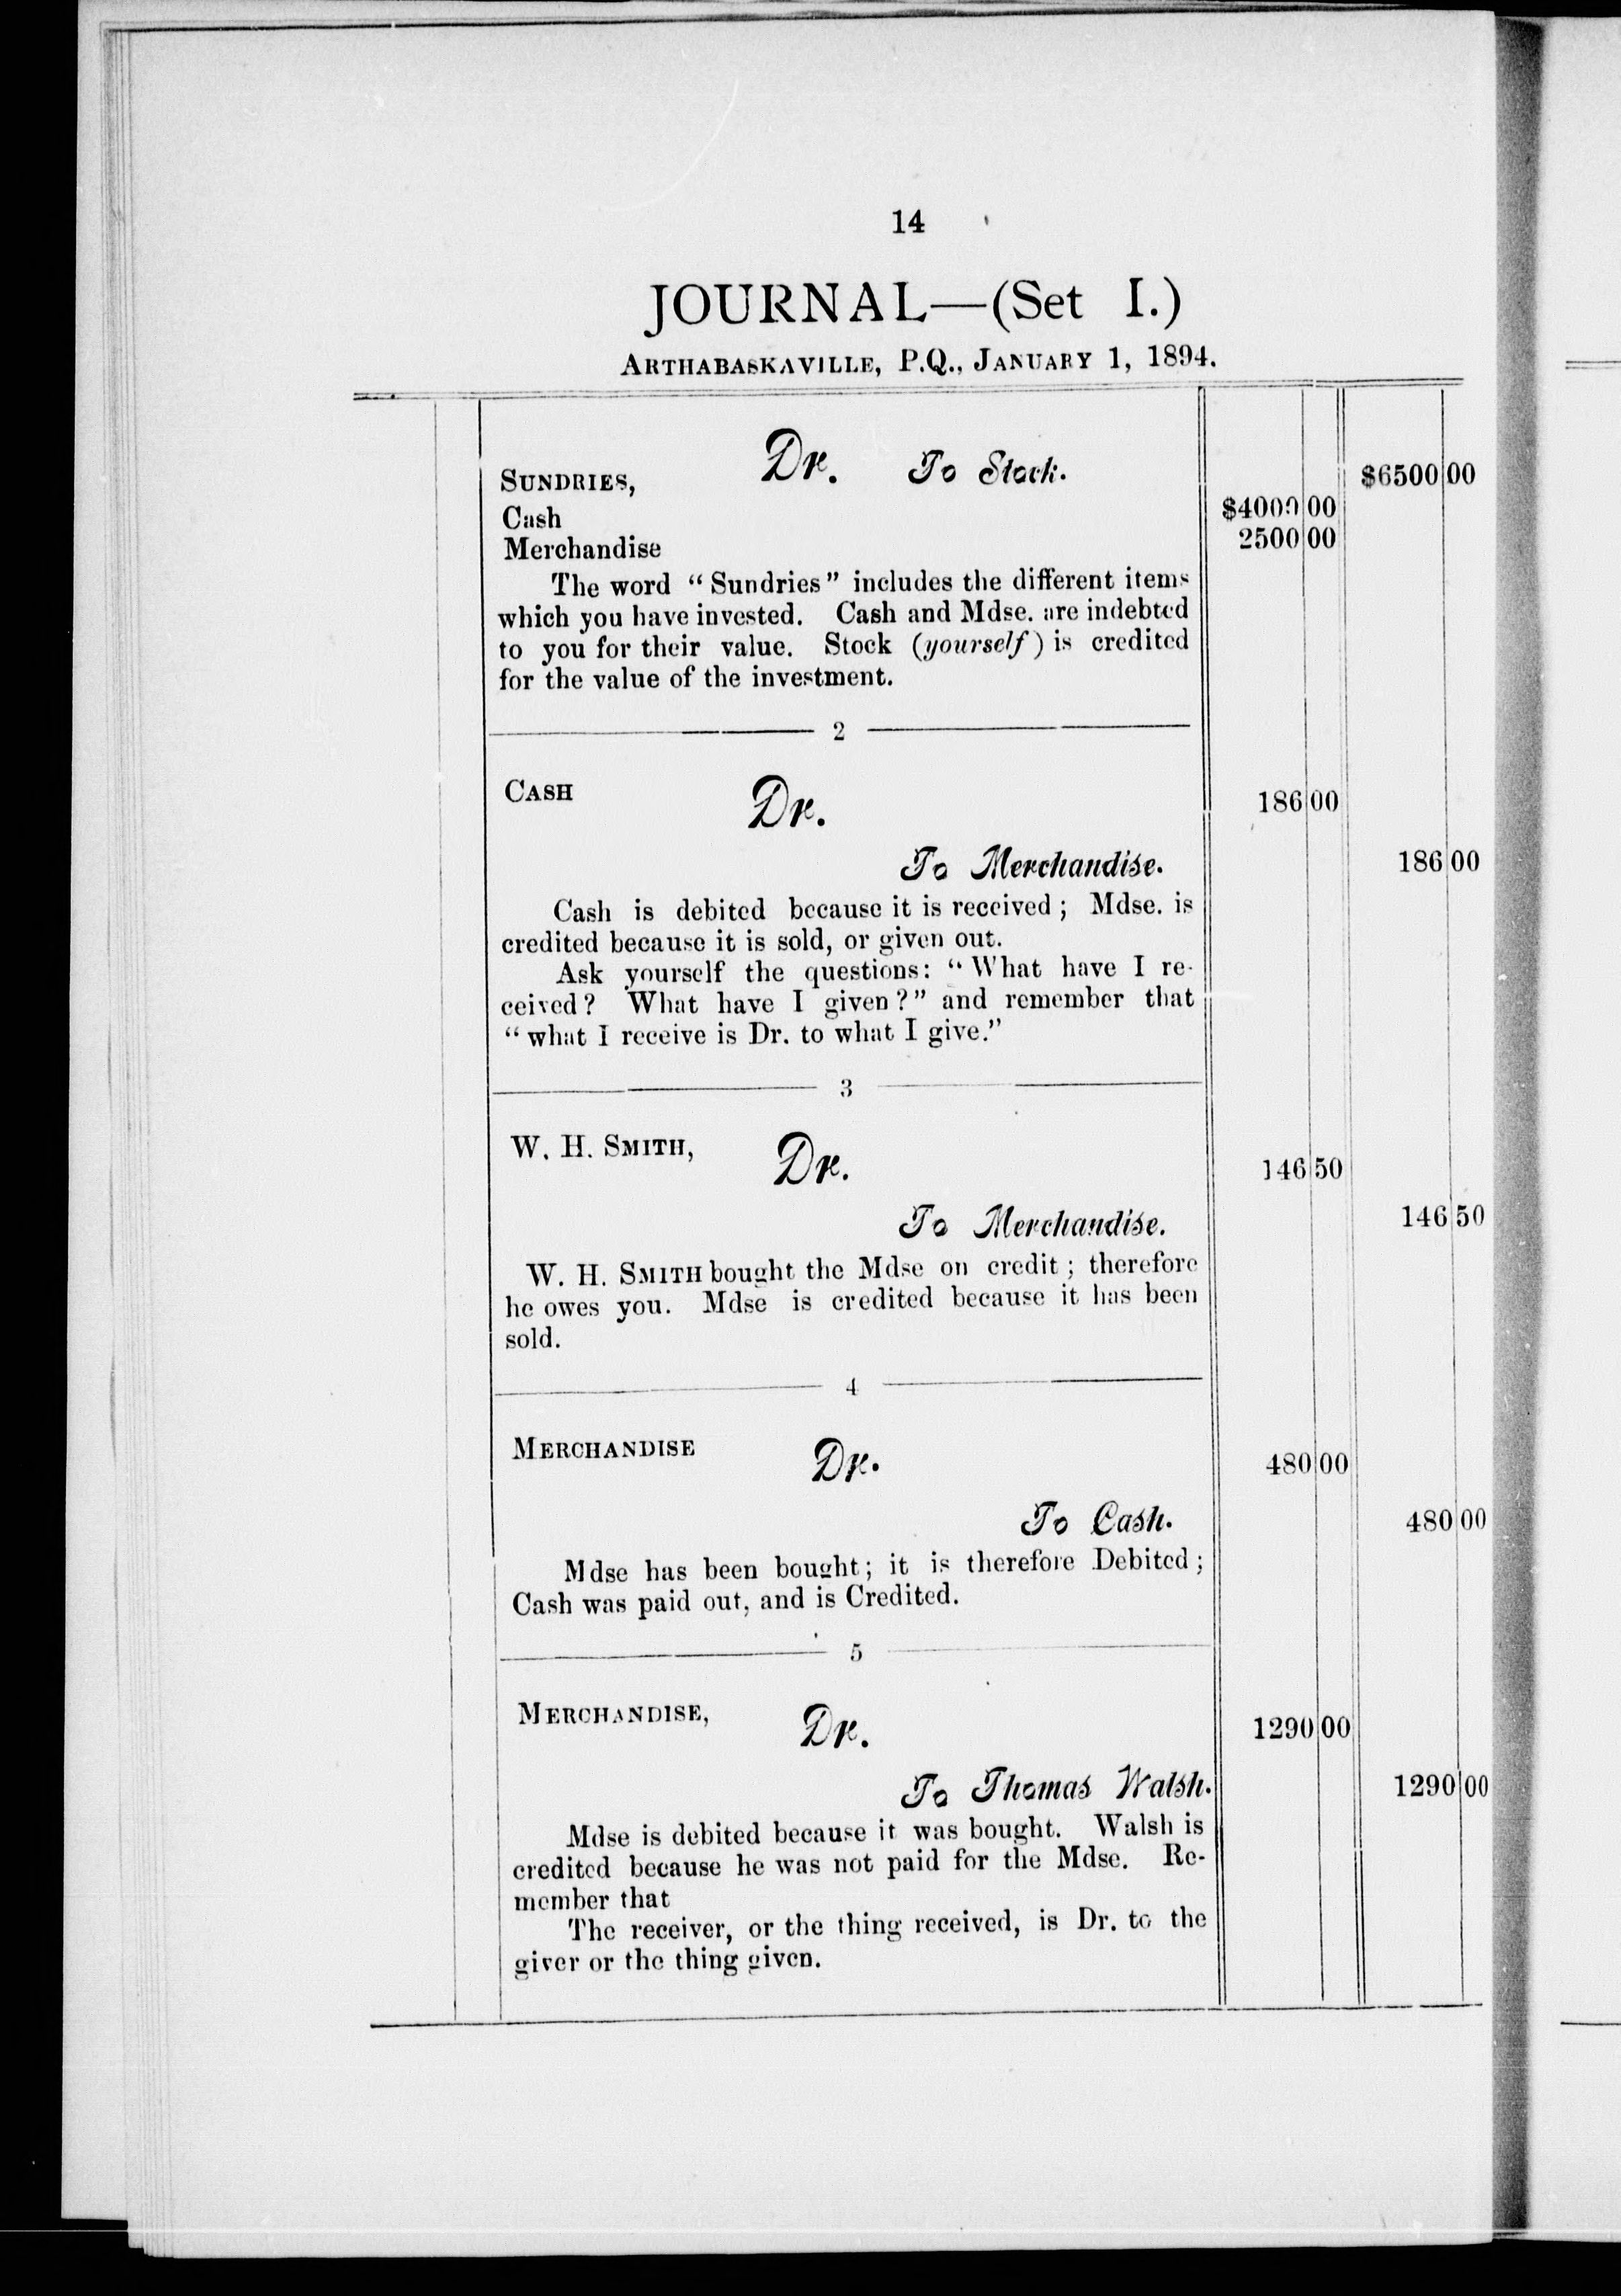 14
JOURNAL—(Set I.)
ARTHABASKAVILLE, P.Q., JANUARY 1, 1894.
SUNDRIES, Dr. To Stock. $6500 00
Cash $4000 00
Merchandise 2500 00
The word “Sundries” includes the different items
which you have invested. Cash and Mdse. are indebted
to you for their value. Stock (yourself) is credited
for the value of the investment.
2
CASH Dr. 186 00
To Merchandise. 186 00
Cash is debited because it is received; Mdse. is
credited because it is sold, or given out.
Ask yourself the questions: “What have I re-
ceived? What have I given?” and remember that
“what I receive is Dr. to what I give.”
3
W. H. SMITH, Dr. 146 50
To Merchandise. 146 50
W. H. SMITH bought the Mdse on credit; therefore
he owes you. Mdse is credited because it has been
sold.
4
MERCHANDISE Dr. 480 00
To Cash. 480 00
Mdse has been bought; it is therefore Debited;
Cash was paid out, and is Credited.
5
MERCHANDISE, Dr. 1290 00
To Thomas Walsh. 1290 00
Mdse is debited because it was bought. Walsh is
credited because he was not paid for the Mdse. Re-
member that
The receiver, or the thing received, is Dr. to the
giver or the thing given.